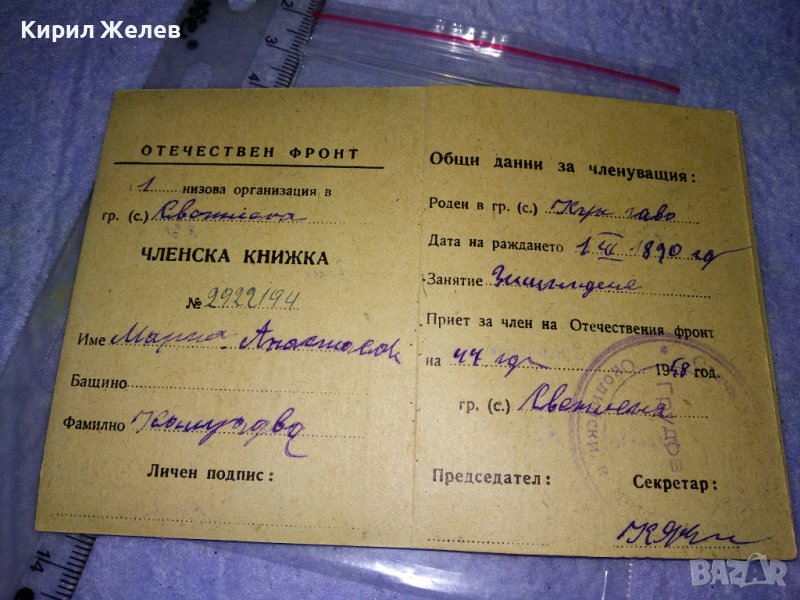 Кирил Желев
ОТЕЧЕСТВЕН ФРОНТ
1 низова организация в
гр. (с.) Светлина
ЧЛЕНСКА КНИЖКА
№ 2922194
Име Мария Анастасов
Бащино
Фамилно
Личен подпис:
Общи данни за членуващия:
Роден в гр. (с.)
Дата на раждането 1 III 1890 год
Занятие Земледелие
Приет за член на Отечествения фронт
на 44 год 1948 год.
гр. (с.) Светлина
Председател: Секретар:
ГРУДОВО
BAZAR